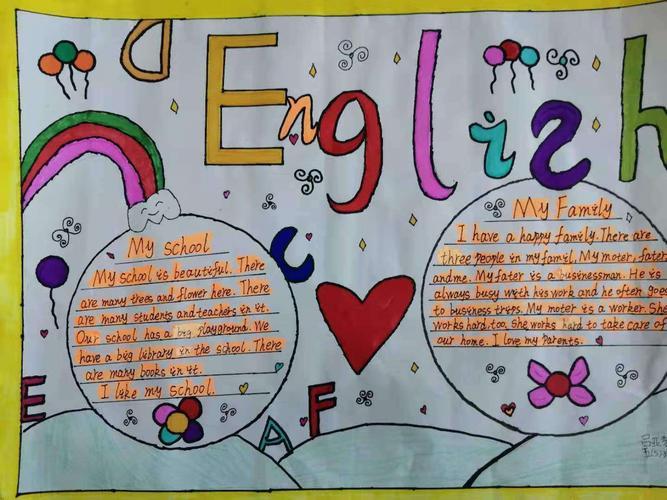 English
My school
My school is beautiful. There
are many trees and flower here. There
are many students and teachers in it.
Our school has a big playground. We
have a big library in the school. There
are many books in it.
I like my school.
My Family
I have a happy family. There are
three people in my famil. My moter, fater
and me. My fater is a businessman. He is
always busy with his work and he often goes
to business trips. My moter is a worker. She
works hard, too. She works hard to take care of
our home. I love my parents.
C
E
A
F